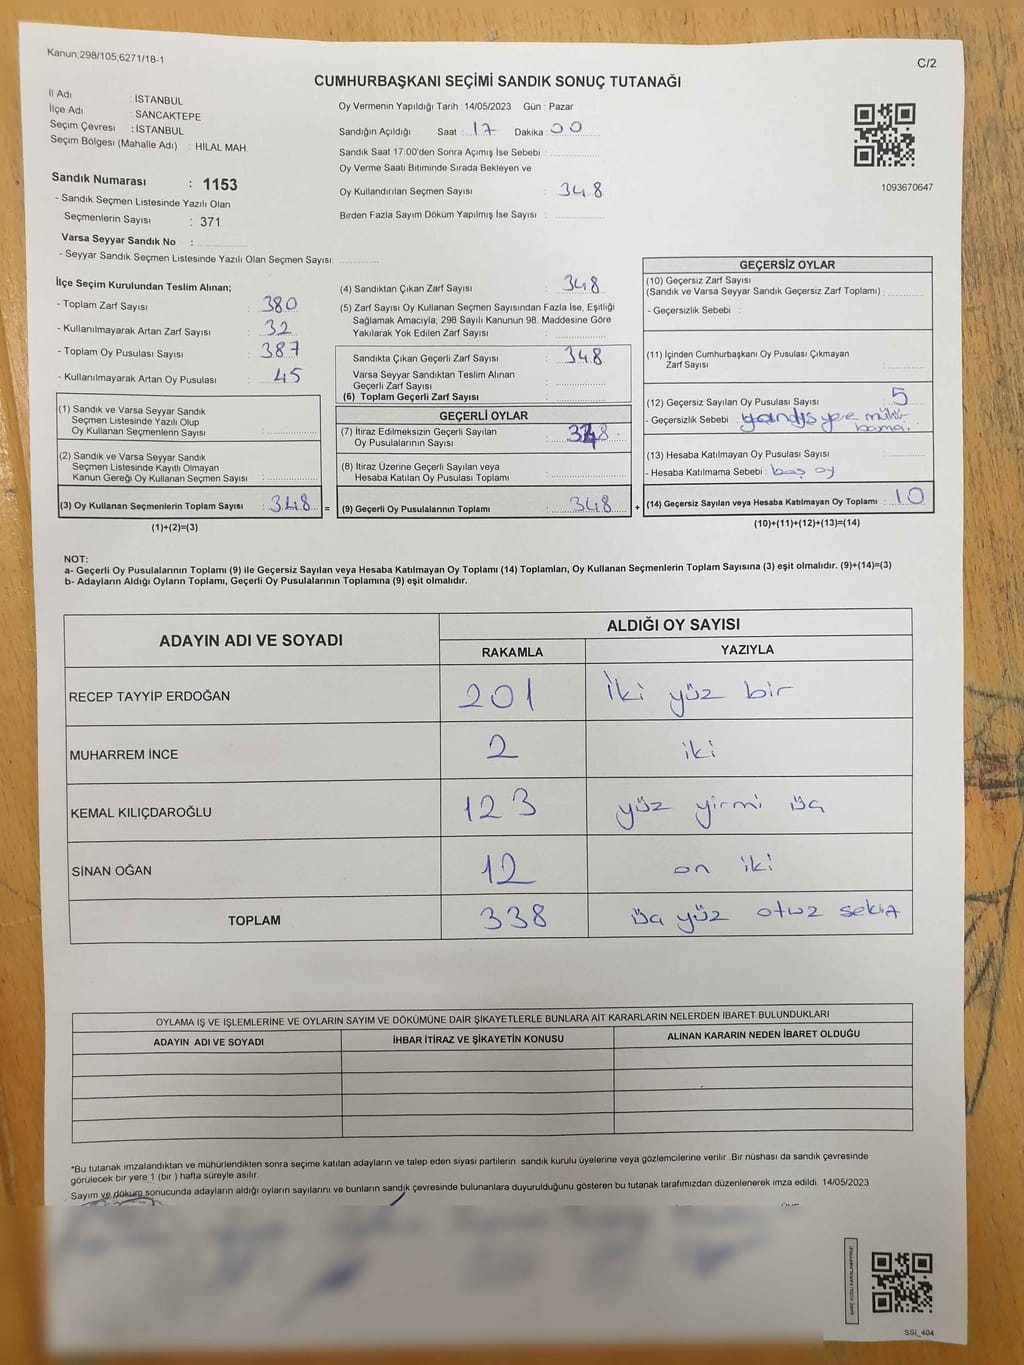 Kanun:298/105,6271/18-1
C/2
CUMHURBAŞKANI SEÇİMİ SANDIK SONUÇ TUTANAĞI
İl Adı : İSTANBUL
İlçe Adı : SANCAKTEPE
Seçim Çevresi : İSTANBUL
Seçim Bölgesi (Mahalle Adı) : HİLAL MAH.
Sandık Numarası : 1153
- Sandık Seçmen Listesinde Yazılı Olan
Seçmenlerin Sayısı : 371
Varsa Seyyar Sandık No :
- Seyyar Sandık Seçmen Listesinde Yazılı Olan Seçmen Sayısı:
Oy Vermenin Yapıldığı Tarih :14/05/2023 Gün : Pazar
Sandığın Açıldığı Saat : 17 Dakika : 00
Sandık Saat 17:00'den Sonra Açımış İse Sebebi :
Oy Verme Saati Bitiminde Sırada Bekleyen ve
Oy Kullandırılan Seçmen Sayısı : 348
Birden Fazla Sayım Döküm Yapılmış İse Sayısı :
1093670647
İlçe Seçim Kurulundan Teslim Alınan;
- Toplam Zarf Sayısı : 380
- Kullanılmayarak Artan Zarf Sayısı : 32
- Toplam Oy Pusulası Sayısı : 387
- Kullanılmayarak Artan Oy Pusulası : 45
(1) Sandık ve Varsa Seyyar Sandık
Seçmen Listesinde Yazılı Olup
Oy Kullanan Seçmenlerin Sayısı :
(2) Sandık ve Varsa Seyyar Sandık
Seçmen Listesinde Kayıtlı Olmayan
Kanun Gereği Oy Kullanan Seçmen Sayısı :
(3) Oy Kullanan Seçmenlerin Toplam Sayısı : 348 =
(1)+(2)=(3)
(4) Sandıktan Çıkan Zarf Sayısı : 348
(5) Zarf Sayısı Oy Kullanan Seçmen Sayısından Fazla İse, Eşitliği
Sağlamak Amacıyla; 298 Sayılı Kanunun 98. Maddesine Göre
Yakılarak Yok Edilen Zarf Sayısı :
Sandıkta Çıkan Geçerli Zarf Sayısı : 348
Varsa Seyyar Sandıktan Teslim Alınan
Geçerli Zarf Sayısı :
(6) Toplam Geçerli Zarf Sayısı :
GEÇERLİ OYLAR
(7) İtiraz Edilmeksizin Geçerli Sayılan
Oy Pusulalarının Sayısı :
(8) İtiraz Üzerine Geçerli Sayılan veya
Hesaba Katılan Oy Pusulası Toplamı :
(9) Geçerli Oy Pusulalarının Toplamı : 348 +
GEÇERSİZ OYLAR
(10) Geçersiz Zarf Sayısı
(Sandık ve Varsa Seyyar Sandık Geçersiz Zarf Toplamı) :
- Geçersizlik Sebebi :
(11) İçinden Cumhurbaşkanı Oy Pusulası Çıkmayan
Zarf Sayısı :
(12) Geçersiz Sayılan Oy Pusulası Sayısı : 5
- Geçersizlik Sebebi : yere mühür
basma.
(13) Hesaba Katılmayan Oy Pusulası Sayısı :
- Hesaba Katılmama Sebebi : boş oy
(14) Geçersiz Sayılan veya Hesaba Katılmayan Oy Toplamı : 10
(10)+(11)+(12)+(13)=(14)
NOT:
a- Geçerli Oy Pusulalarının Toplamı (9) ile Geçersiz Sayılan veya Hesaba Katılmayan Oy Toplamı (14) Toplamları, Oy Kullanan Seçmenlerin Toplam Sayısına (3) eşit olmalıdır. (9)+(14)=(3)
b- Adayların Aldığı Oyların Toplamı, Geçerli Oy Pusulalarının Toplamına (9) eşit olmalıdır.
ADAYIN ADI VE SOYADI ALDIĞI OY SAYISI
RAKAMLA YAZIYLA
RECEP TAYYİP ERDOĞAN 201 İki yüz bir
MUHARREM İNCE 2 iki
KEMAL KILIÇDAROĞLU 123 yüz yirmi üç
SİNAN OĞAN 12 on iki
TOPLAM 338 üç yüz otuz sekiz
OYLAMA İŞ VE İŞLEMLERİNE VE OYLARIN SAYIM VE DÖKÜMÜNE DAİR ŞİKAYETLERLE BUNLARA AİT KARARLARIN NELERDEN İBARET BULUNDUKLARI
ADAYIN ADI VE SOYADI İHBAR İTİRAZ VE ŞİKAYETİN KONUSU ALINAN KARARIN NEDEN İBARET OLDUĞU
*Bu tutanak imzalandıktan ve mühürlendikten sonra seçime katılan adayların ve talep eden siyasi partilerin sandık kurulu üyelerine veya gözlemcilerine verilir .Bir nüshası da sandık çevresinde
görülecek bir yere 1 (bir ) hafta süreyle asılır.
Sayım ve döküm sonucunda adayların aldığı oyların sayılarını ve bunların sandık çevresinde bulunanlara duyurulduğunu gösteren bu tutanak tarafımızdan düzenlenerek imza edildi. 14/05/2023
SSI_404